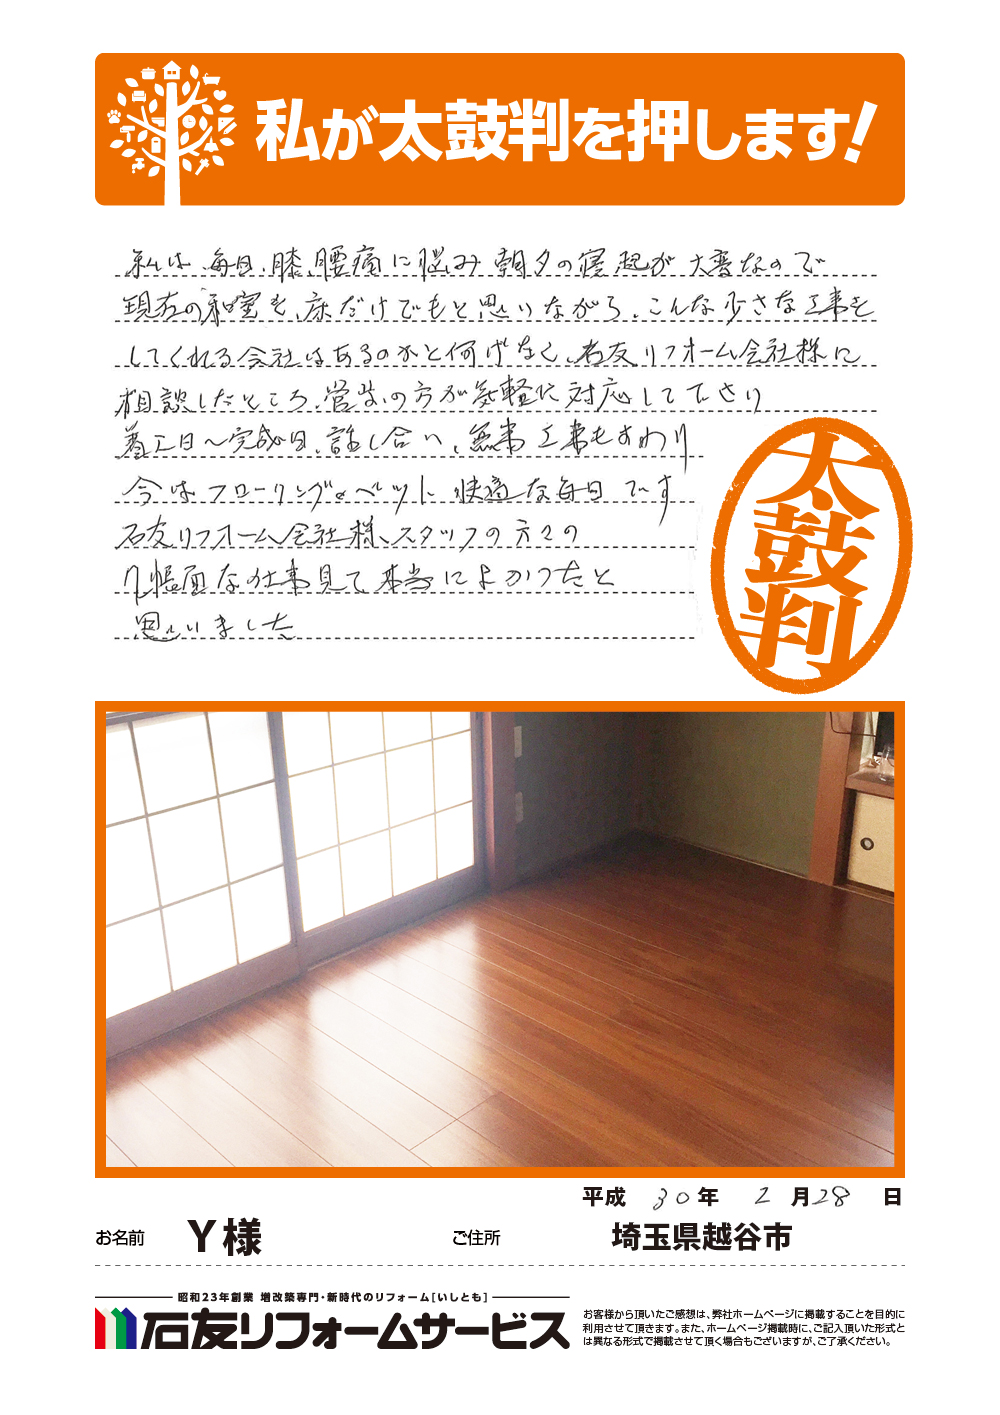 私が太鼓判を押します!
私は毎日、膝、腰痛に悩み朝夕の寝起が大変なので
現在の和室を、床だけでもと思いながら、こんな少さな工事を
してくれる会社はあるのかと何げなく、石友リフォーム会社様に
相談したところ、営業の方が気軽に対応して下さり
着工日〜完成日、話し合い、無事工事もおわり
今はフローリング&ベットに快適な毎日です
石友リフォーム会社様、スタッフの方々の
几帳面な仕事見て本当によかったと
思いました
太鼓判
平成 30年 2月28日
お名前 Y様 ご住所 埼玉県越谷市
昭和23年創業 増改築専門・新時代のリフォーム[いしとも]
石友リフォームサービス
お客様から頂いたご感想は、弊社ホームページに掲載することを目的に
利用させて頂きます。また、ホームページ掲載時に、ご記入頂いた形式と
は異なる形式で掲載させて頂く場合もございますが、ご了承ください。